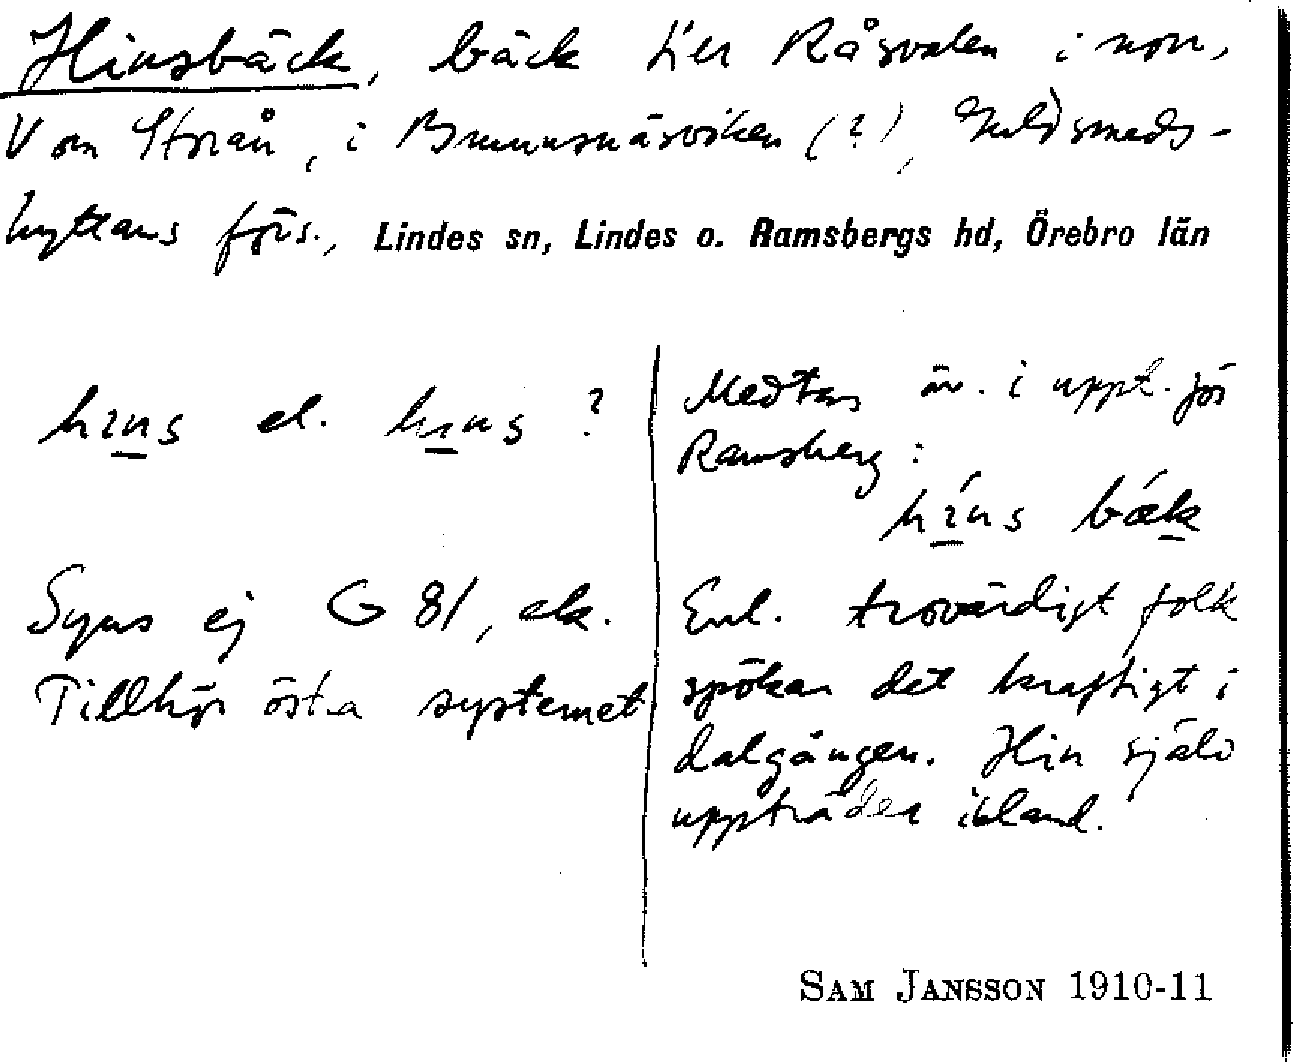 Hinsbäck, bäck t. en Råsvalen i norr,
V om Storån, i Brunnsnäsviken (?), Guldsmeds-
hyttans förs., Lindes sn, Lindes o. Ramsbergs hd, Örebro län
hɩns el. hɩns ?
Syns ej G 81, ek.
Tillhör östra systemet
Medtas äv. i uppt. för
Ramsberg:
hɩ́ns bǽk
Enl. trovärdigt folk
spökar det kraftigt i
dalgången. Hin själv
uppträder ibland.
SAM JANSSON 1910-11